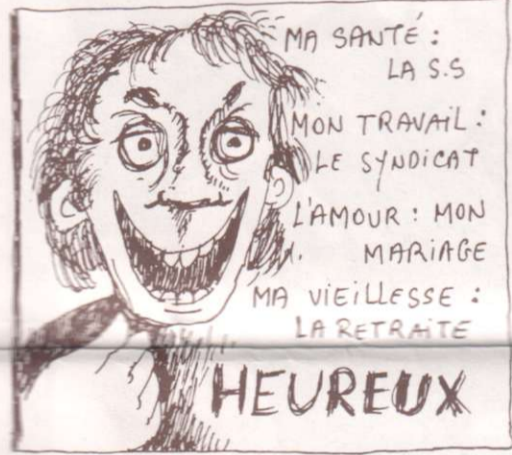 MA SANTÉ :
LA S.S
MON TRAVAIL :
LE SYNDICAT
L'AMOUR : MON
MARIAGE
MA VIEILLESSE :
LA RETRAITE
HEUREUX